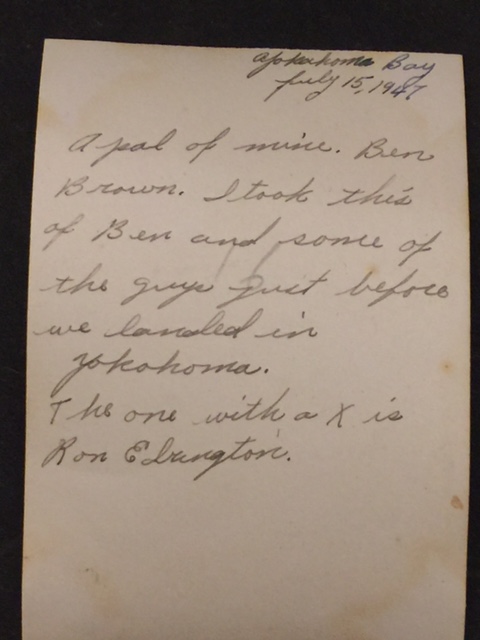 Yokohoma Bay
July 15, 1947
A pal of mine. Ben
Brown. I took this
of Ben and some of
the guys just before
we landed in
Yokohoma.
The one with a X is
Ron Edrington.